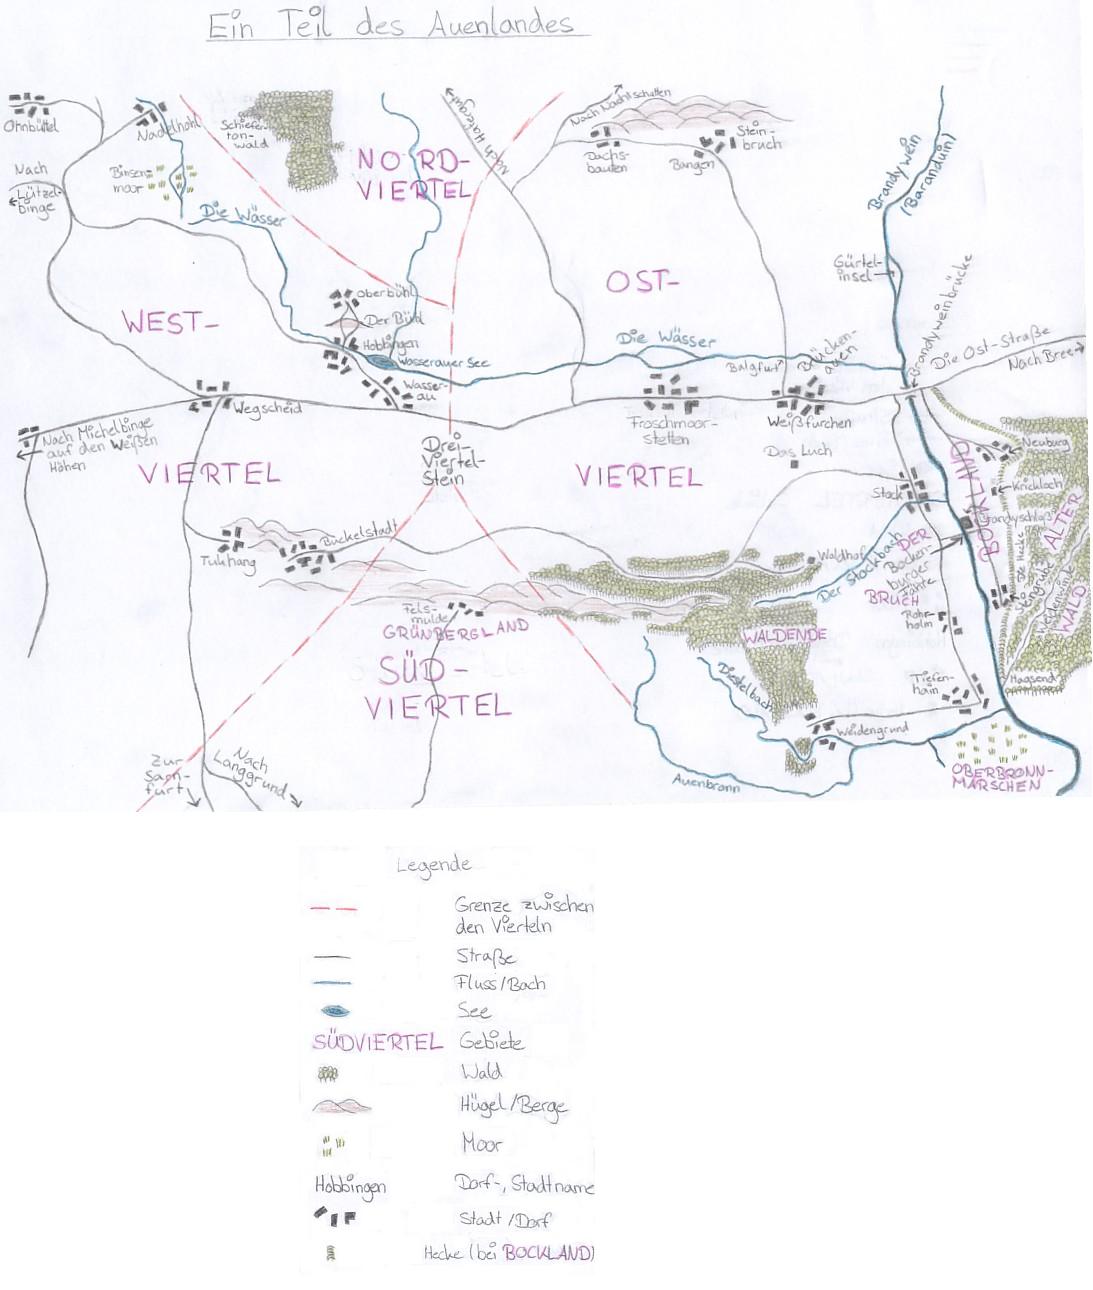 Ein Teil des Auenlandes
Ohnbüttel
Nadelhohl
Schiefer-
ton-
wald
Nach
Lützel-
binge
Binsen-
moor
Die Wässer
NORD-
VIERTEL
Nach Nachtschatten
Dachs-
bauten
Bangen
Stein-
bruch
Brandywein
(Baranduin)
Gürtel-
insel
OST-
WEST-
Oberbühl
Der Bühl
Hobbingen
Wasserauer See
Wasser-
au
Die Wässer
Balgfurt
Brücken-
auen
Brandyweinbrücke
Die Ost-Straße
Nach Bree
Wegscheid
Nach Michelbinge
auf den Weißen
Höhen
Froschmoor-
stetten
Weißfurchen
VIERTEL
Drei-
Viertel-
Stein
VIERTEL
Das Luch
Stock
BOCKLAND
Neuburg
Krickloch
Brandyschloß
ALTER
WALD
Tukhang
Buckelstadt
Waldhof
Der Stockbach
DER
BRUCH
Bocken-
burger
Fähre
Die Hecke
Steingrube
Weidenwinde
Fels-
mulde
GRÜNBERGLAND
WALDENDE
Rohr-
holm
SÜD-
VIERTEL
Diestelbach
Tiefen-
hain
Hagsend
Weidengrund
Zur
Sarn-
furt
Nach
Langgrund
Auenbronn
OBERBRONN-
MARSCHEN
Legende
Grenze zwischen
den Vierteln
Straße
Fluss/Bach
See
SÜDVIERTEL Gebiete
Wald
Hügel/Berge
Moor
Hobbingen Dorf-, Stadtname
Stadt/Dorf
Hecke (bei BOCKLAND)